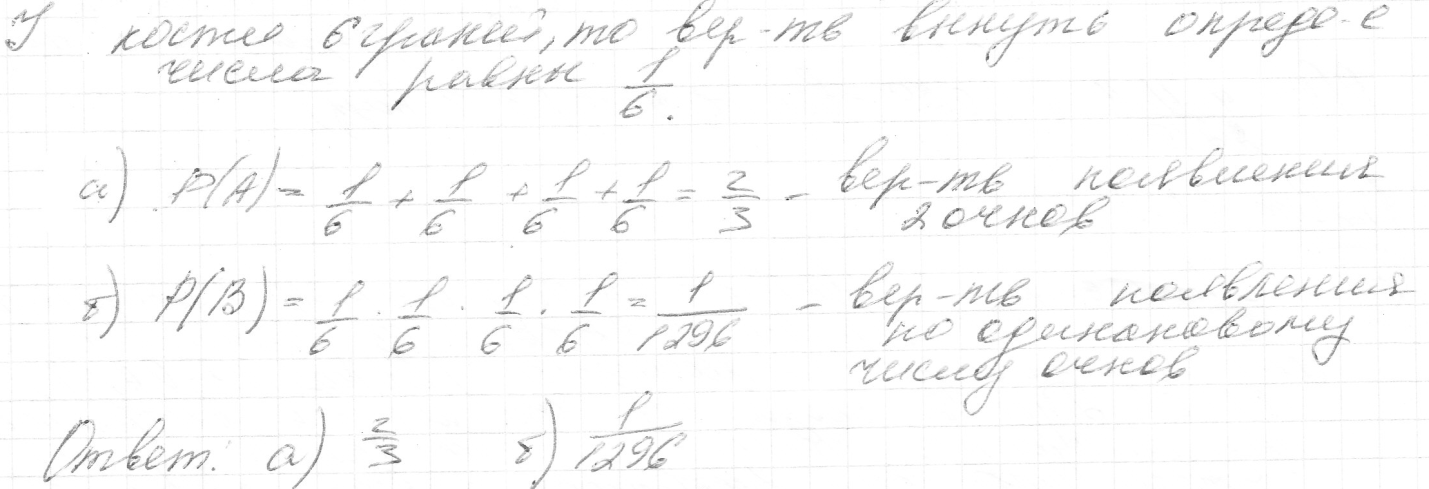 У кости 6 граней, то вер-ть вынуть опреде-е
числа равны 1/6.
а) P(A) = 1/6 + 1/6 + 1/6 + 1/6 = 2/3 - вер-ть появления
2 очков
б) P(B) = 1/6 · 1/6 · 1/6 · 1/6 = 1/1296 - вер-ть появления
по одинаковому
числу очков
Ответ: а) 2/3 б) 1/1296